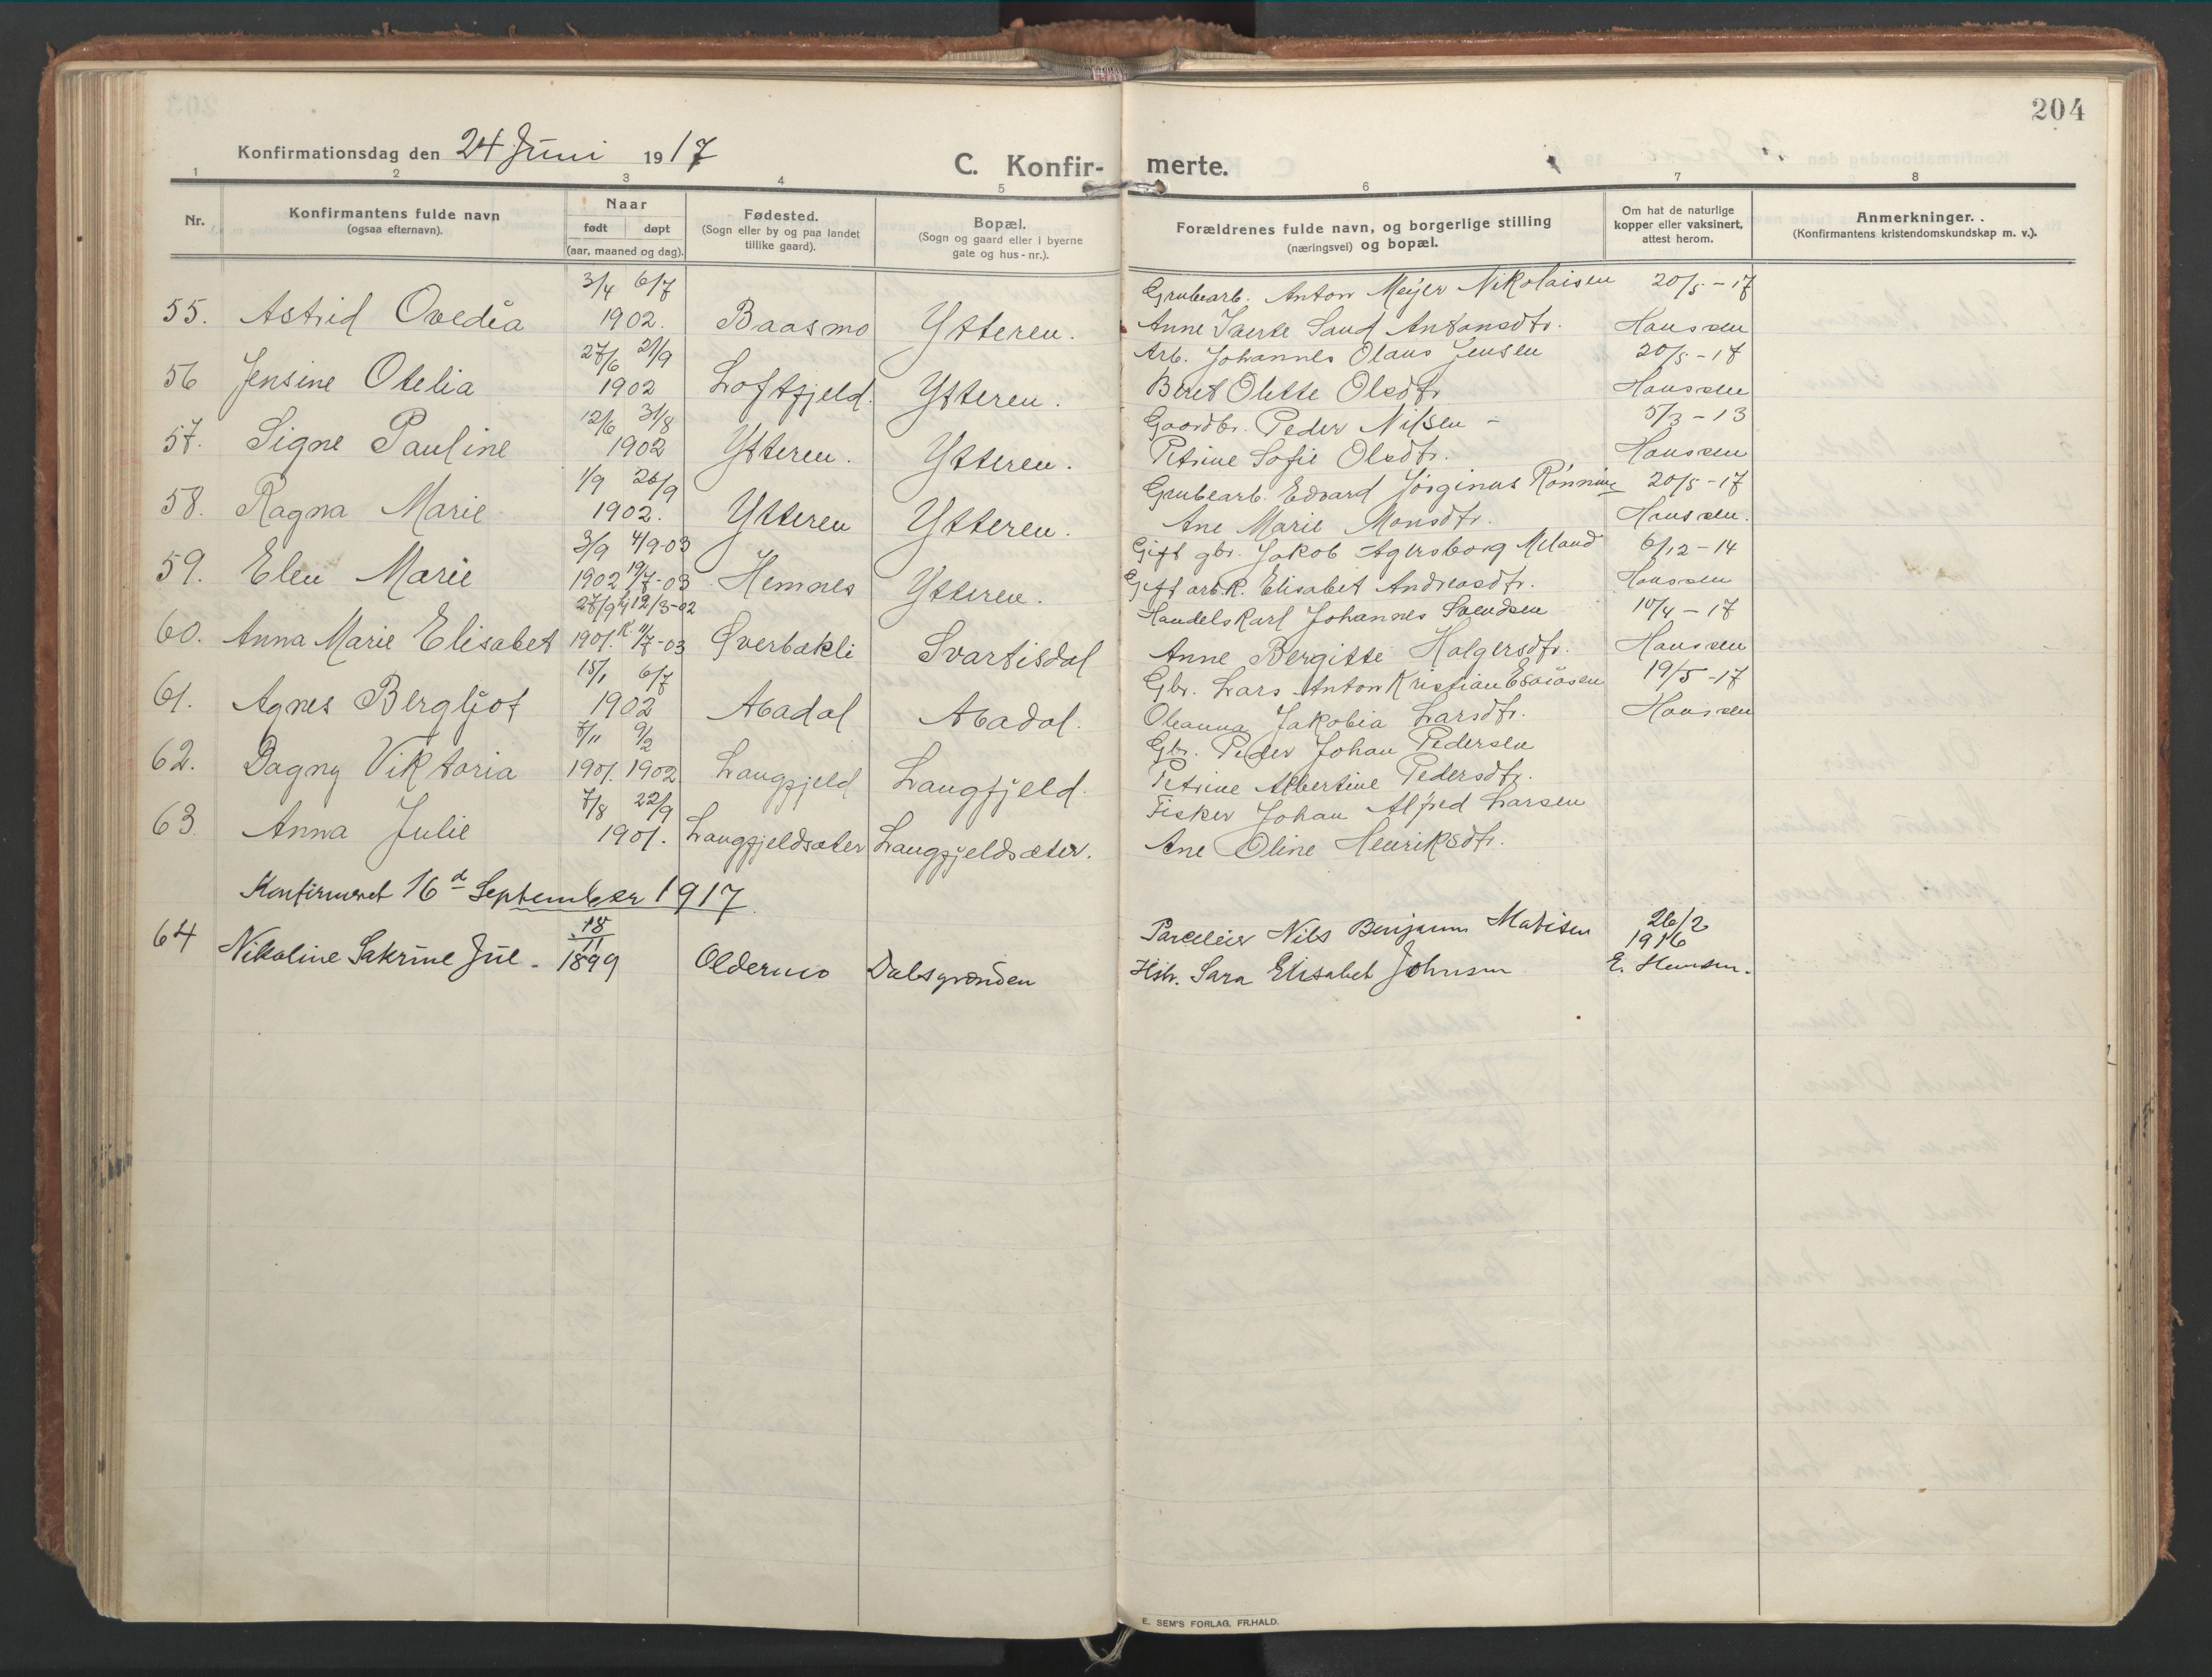 204
Konfirmationsdag den 24 Juni 1917
C. Konfir- merte.
1 2 3 4 5 6 7 8
Nr.
Konfirmantens fulde navn
(ogsaa efternavn).
Naar
født døpt
(aar, maaned og dag).
Fødested.
(Sogn eller by og paa landet
tillike gaard).
Bopæl.
(Sogn og gaard eller i byerne
gate og hus-nr.).
Forældrenes fulde navn, og borgerlige stilling
(næringsvei) og bopæl.
Om hat de naturlige
kopper eller vaksinert,
attest herom.
Anmerkninger. .
(Konfirmantens kristendomskundskap m. v.).
3/4 6/7 Grubearb. Anton Meyer Nikolaisen 20/5-17
55. Astrid Ovedia 1902. Baasmo Ytteren. Anne Sand Antonsdtr. Hanssen
27/6 21/9 Arb. Johannes Olaus Jensen 20/5-17
56 Jensine Otelia 1902 Loftfjeld. Ytteren. Beret Olette Olsdtr. Hanssen
12/6 31/8 Gaardbr. Peder Nilsen - 5/3-13
57. Signe Pauline 1902 Ytteren. Ytteren. Petrine Sofie Olsdtr. Hanssen
1/9 26/9 Grubearb. Edvard Jørginus Rønning 20/5-17
58. Ragna Marie 1902. Ytteren Ytteren. Ane Marie Monsdtr. Hanssen.
3/9 4/9-03 Gift gbr. Jakob Agersborg Meland 6/12-14
59. Elen Marie 1902 19/7-03 Hemnes Ytteren. Gift arb.k. Elisabet Andreasdtr. Hanssen
27/9 hj 12/3-02 Handelskarl Johannes Svendsen 10/4-17
60. Anna Marie Elisabet 1901. K 11/7-03 Øverbækli Svartisdal Anne Bergitte Holgersdtr. Hanssen
15/1 6/7 Gbr. Lars Anton Kristian Esaiasen 19/5-17
61. Agnes Bergljot 1902 Abadal Abadal. Oleanna Jakobia Larsdtr. Hanssen
7/11 9/2 Gbr. Peder Johan Pedersen
62. Dagny Viktoria 1901. 1902 Langfjeld Langfjeld. Petrine Albertine Pedersdtr.
7/8 22/9 Fisker Johan Alfred Larsen
63. Anna Julie 1901. Langfjeldsæter Langfjeldsæter. Ane Oline Henriksdtr.
Konfirmeret 16d September 1917.
18/11 Parceleier Nils Benjamin Matisen 26/2 1916
64 Nikoline Sakrine Jul. 1899 Oldermo Dalsgrenden Hstr. Sara Elisabet Johnsen E. Hansen.
E. SEM'S FORLAG, FR.HALD.